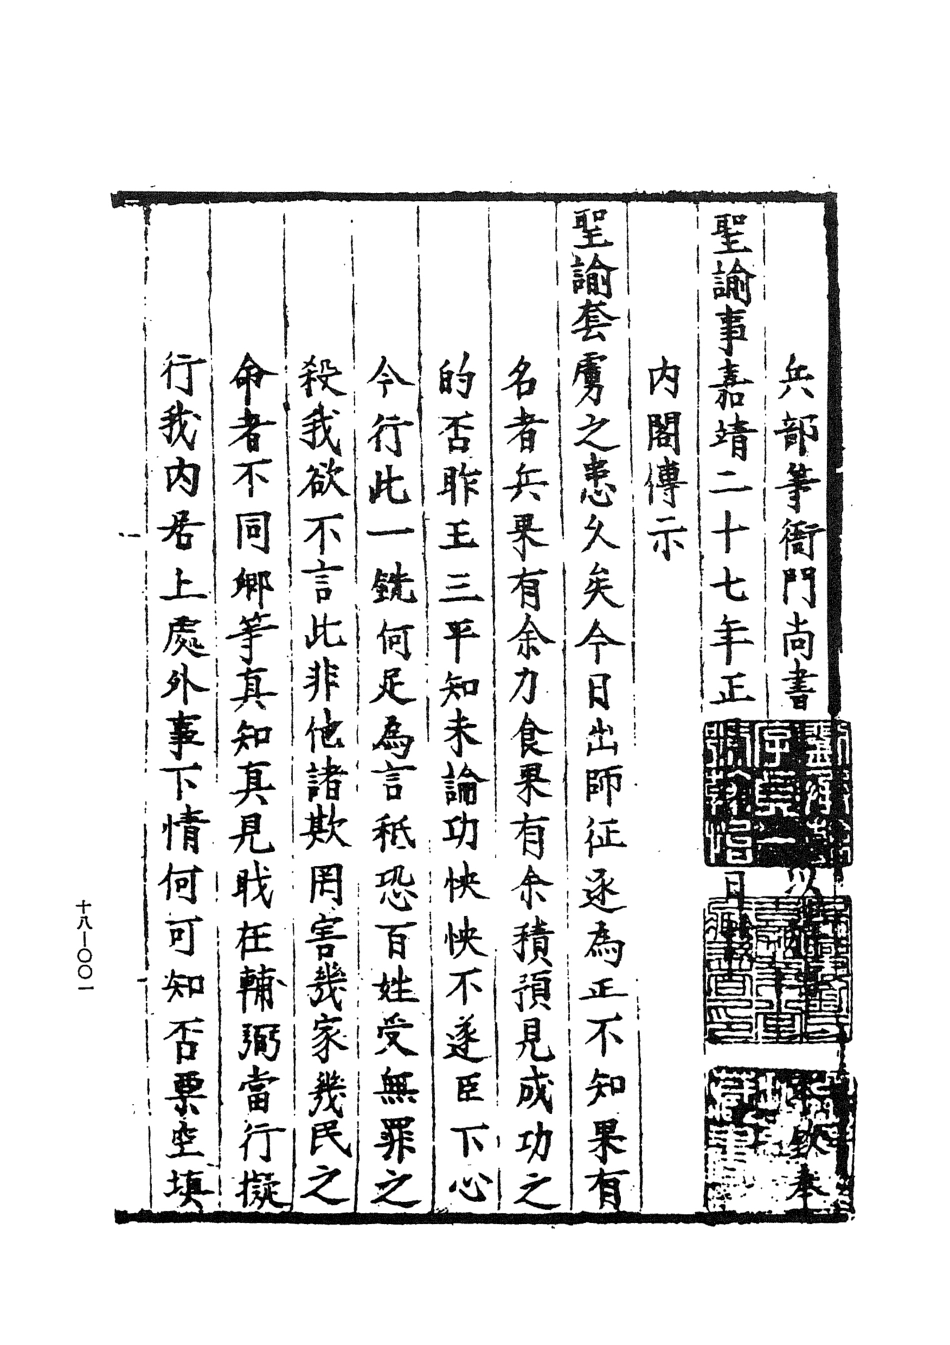 兵部等衙門尚書
欽奉
聖諭事嘉靖二十七年正
日
内閣傳示
聖諭套虜之患久矣今日出師征逐為正不知果有
名者兵果有余力食果有余積預見成功之
的否昨王三平知未論功怏怏不遂臣下心
今行此一銑何足為言秪恐百姓受無罪之
殺我欲不言此非他諸欺罔害幾家幾民之
命者不同卿等真知真見戝在輔弼當行擬
行我内居上處外事下情何可知否票空填
十八—〇〇一